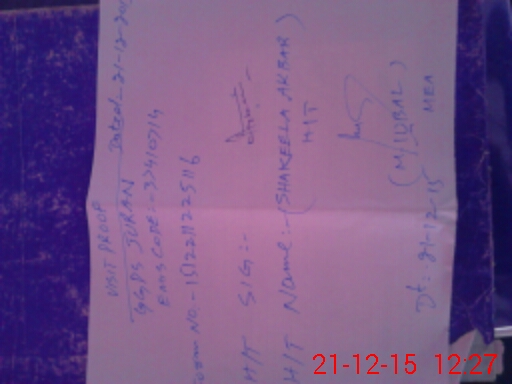 VISIT PROOF
GGPS JURAN Dated - 21-12-2015
EMIS CODE:- 37410714
Form No. - 15122112251116
H/T SIG:-
H/T Name:- (SHAKEELA AKBAR)
H/T
(M/IQBAL)
MEA
Dt. 21-12-15
21-12-15 12:27